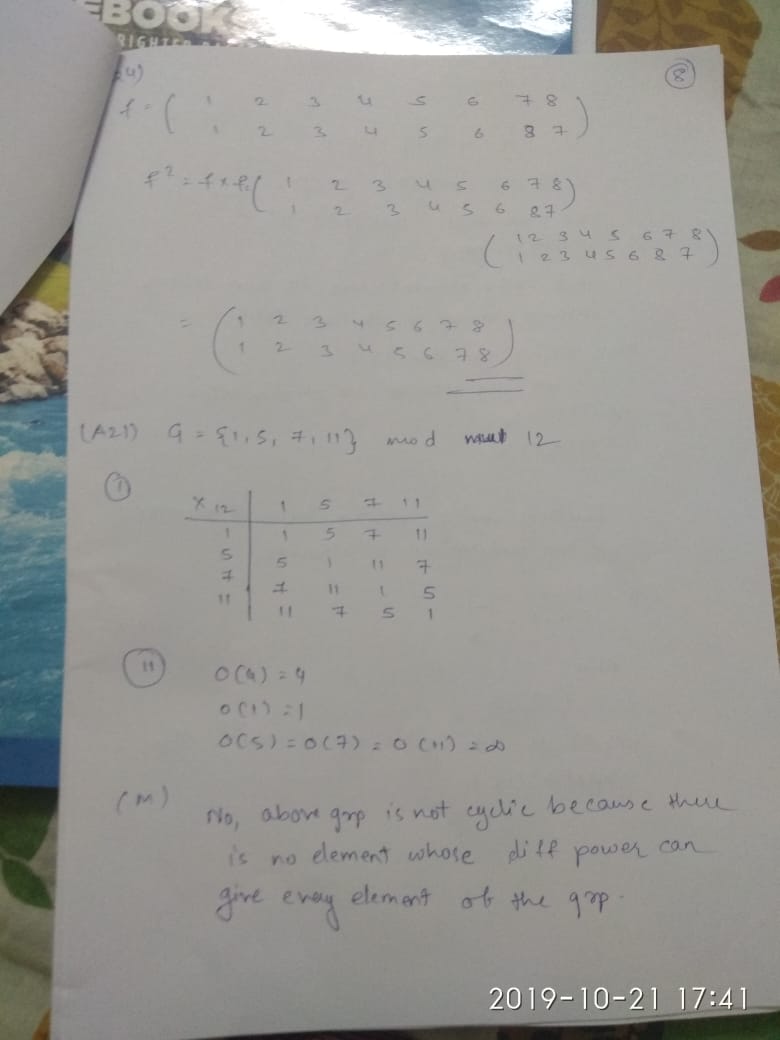 EBOOK
4)
8
f = ( 1 2 3 4 5 6 7 8
1 2 3 4 5 6 8 7 )
f² = f × f = ( 1 2 3 4 5 6 7 8
1 2 3 4 5 6 8 7 )
( 1 2 3 4 5 6 7 8
1 2 3 4 5 6 8 7 )
= ( 1 2 3 4 5 6 7 8
1 2 3 4 5 6 7 8 )
(A21) G = {1, 5, 7, 11} mod 12
I
×12 1 5 7 11
1 1 5 7 11
5 5 1 11 7
7 7 11 1 5
11 11 7 5 1
II
O(G) = 4
O(1) = 1
O(5) = O(7) = O(11) = ∞
(III)
No, above grp is not cyclic because there
is no element whose diff power can
give every element of the grp.
2019-10-21 17:41